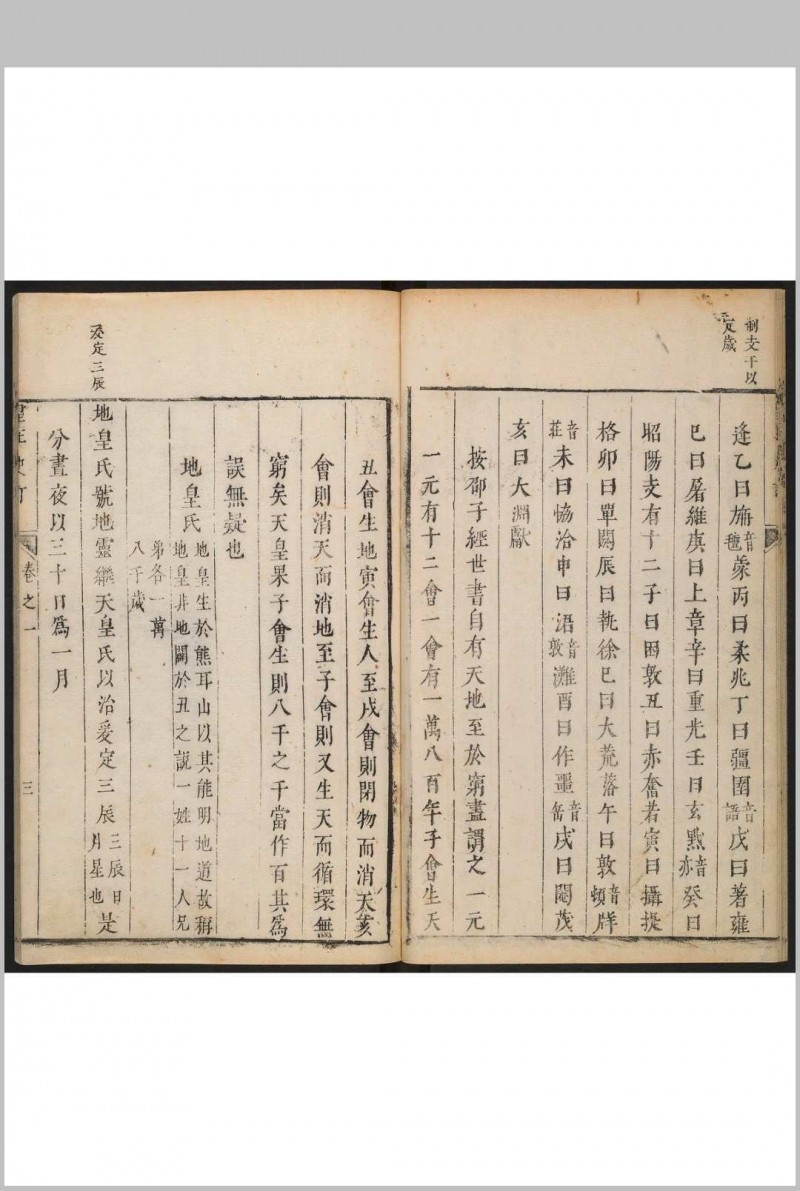 制支干以
定歲
逢乙曰旃音氊蒙丙曰柔兆丁曰疆圉音語戊曰著雍
巳曰屠維庚曰上章辛曰重光壬曰玄黓音亦癸曰
昭陽支有十二子曰困敦丑曰赤奮若寅曰攝提
格卯曰單閼辰曰執徐巳曰大荒落午曰敦音頓牂
音莊未曰恊洽申曰涒音敦灘酉曰作噩音咢戌曰閹茂
亥曰大淵獻
按邵子經世書自有天地至於窮盡謂之一元
一元有十二會一會有一萬八百年子會生天
丑會生地寅會生人至戌會則閉物而消天亥
會則消天而消地至子會則又生天而循環無
窮矣天皇果子會生則八千之千當作百其爲
誤無疑也
地皇氏地皇生於熊耳山以其能明地道故稱
地皇非地闢於丑之説一姓十一人兄
弟各一萬
八千歲
爰定三辰
地皇氏號地靈繼天皇氏以治爰定三辰三辰日月星也是
分晝夜以三十日爲一月
卷之一
三